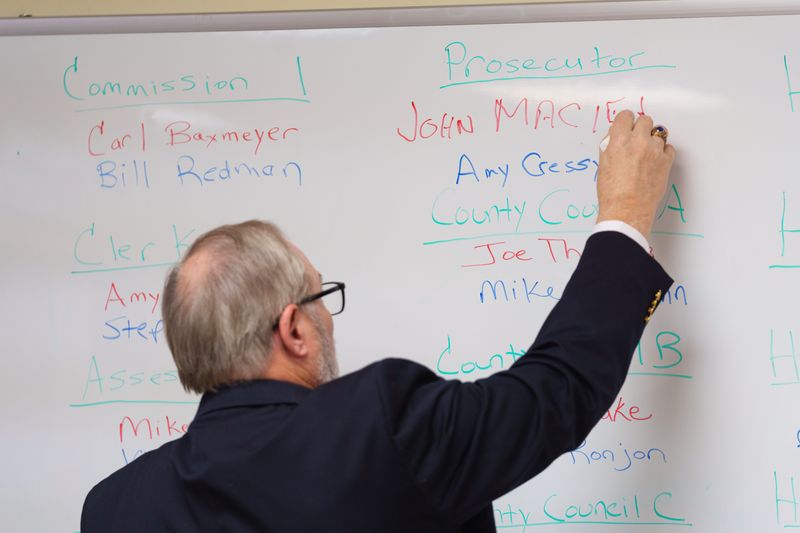 Commission 1
Carl Baxmeyer
Bill Redman
Clerk
Amy
Assess
Mike
Prosecutor
JOHN MACIE
Amy Cressy
County Cou A
Joe Th
Mike nn
County B
ake
Ronjon
nty Council C
H
H
H
H